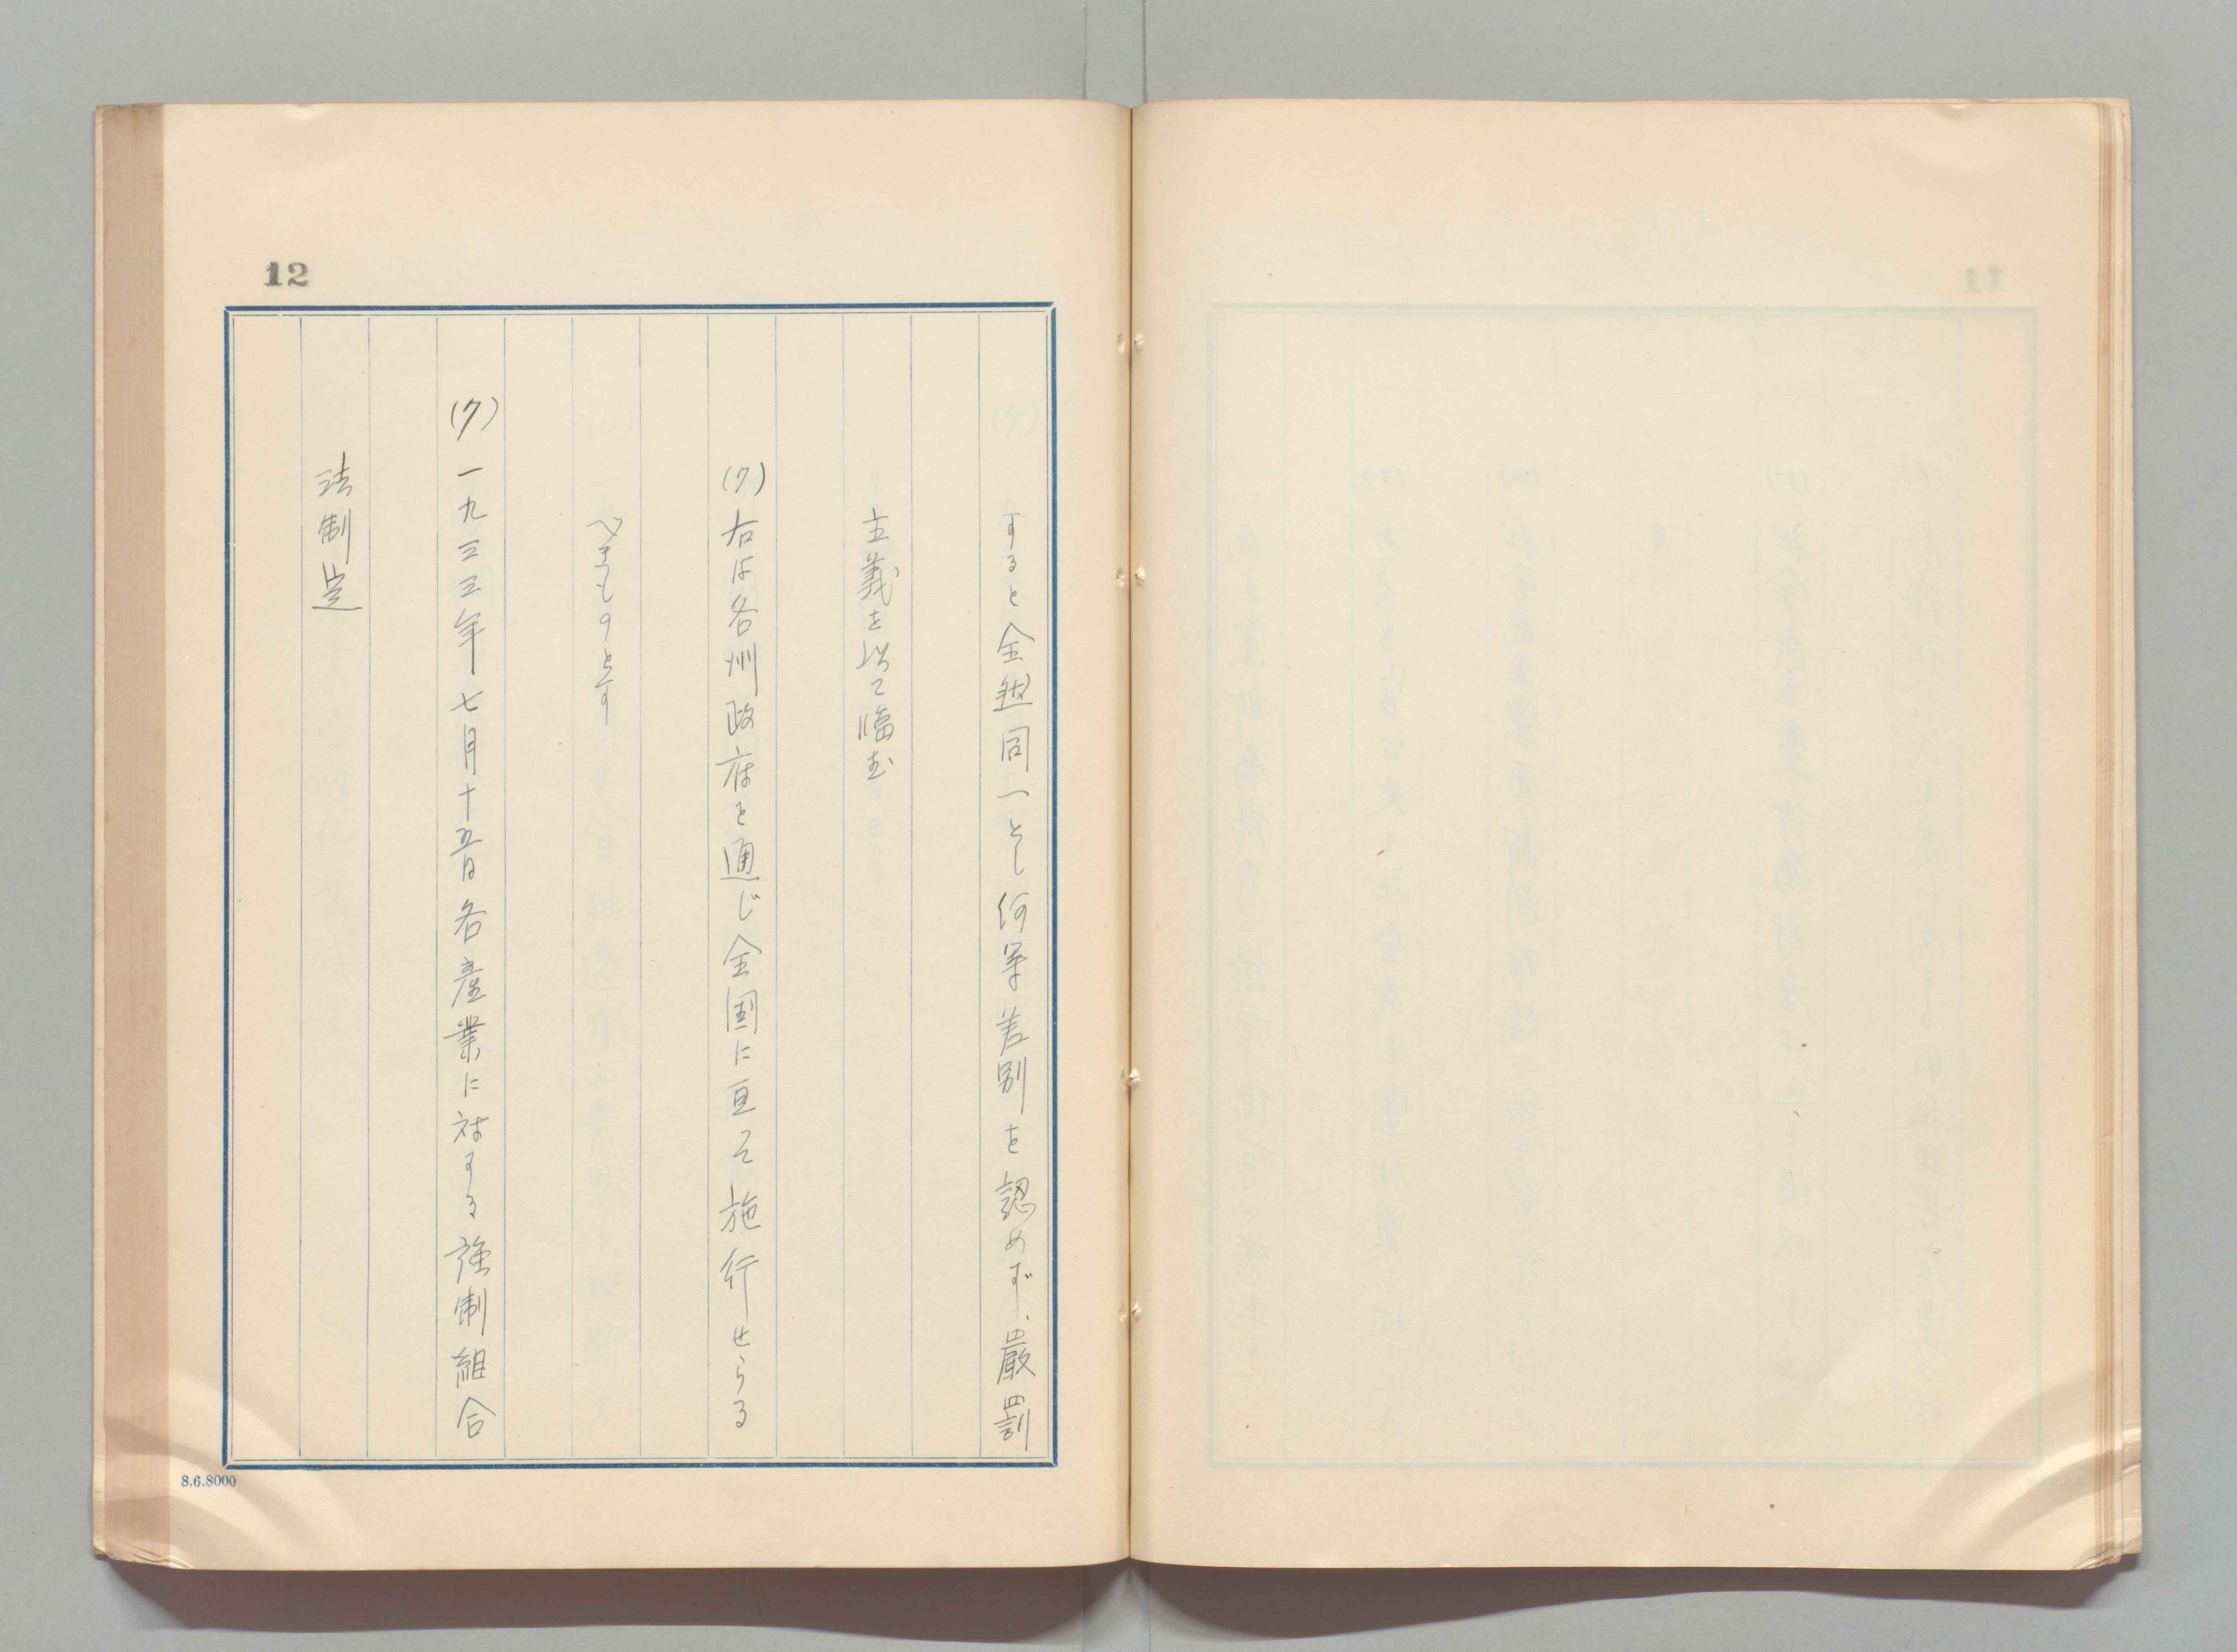 12
すると全然同一とし何等差別を認めず、厳罰
主義を以て臨む
(ワ)右は各州政府を通じ全国に亘て施行せらる
べきものとす
(ク)一九三三年七月十五日各産業に対する強制組合
法制定
8.6.8000